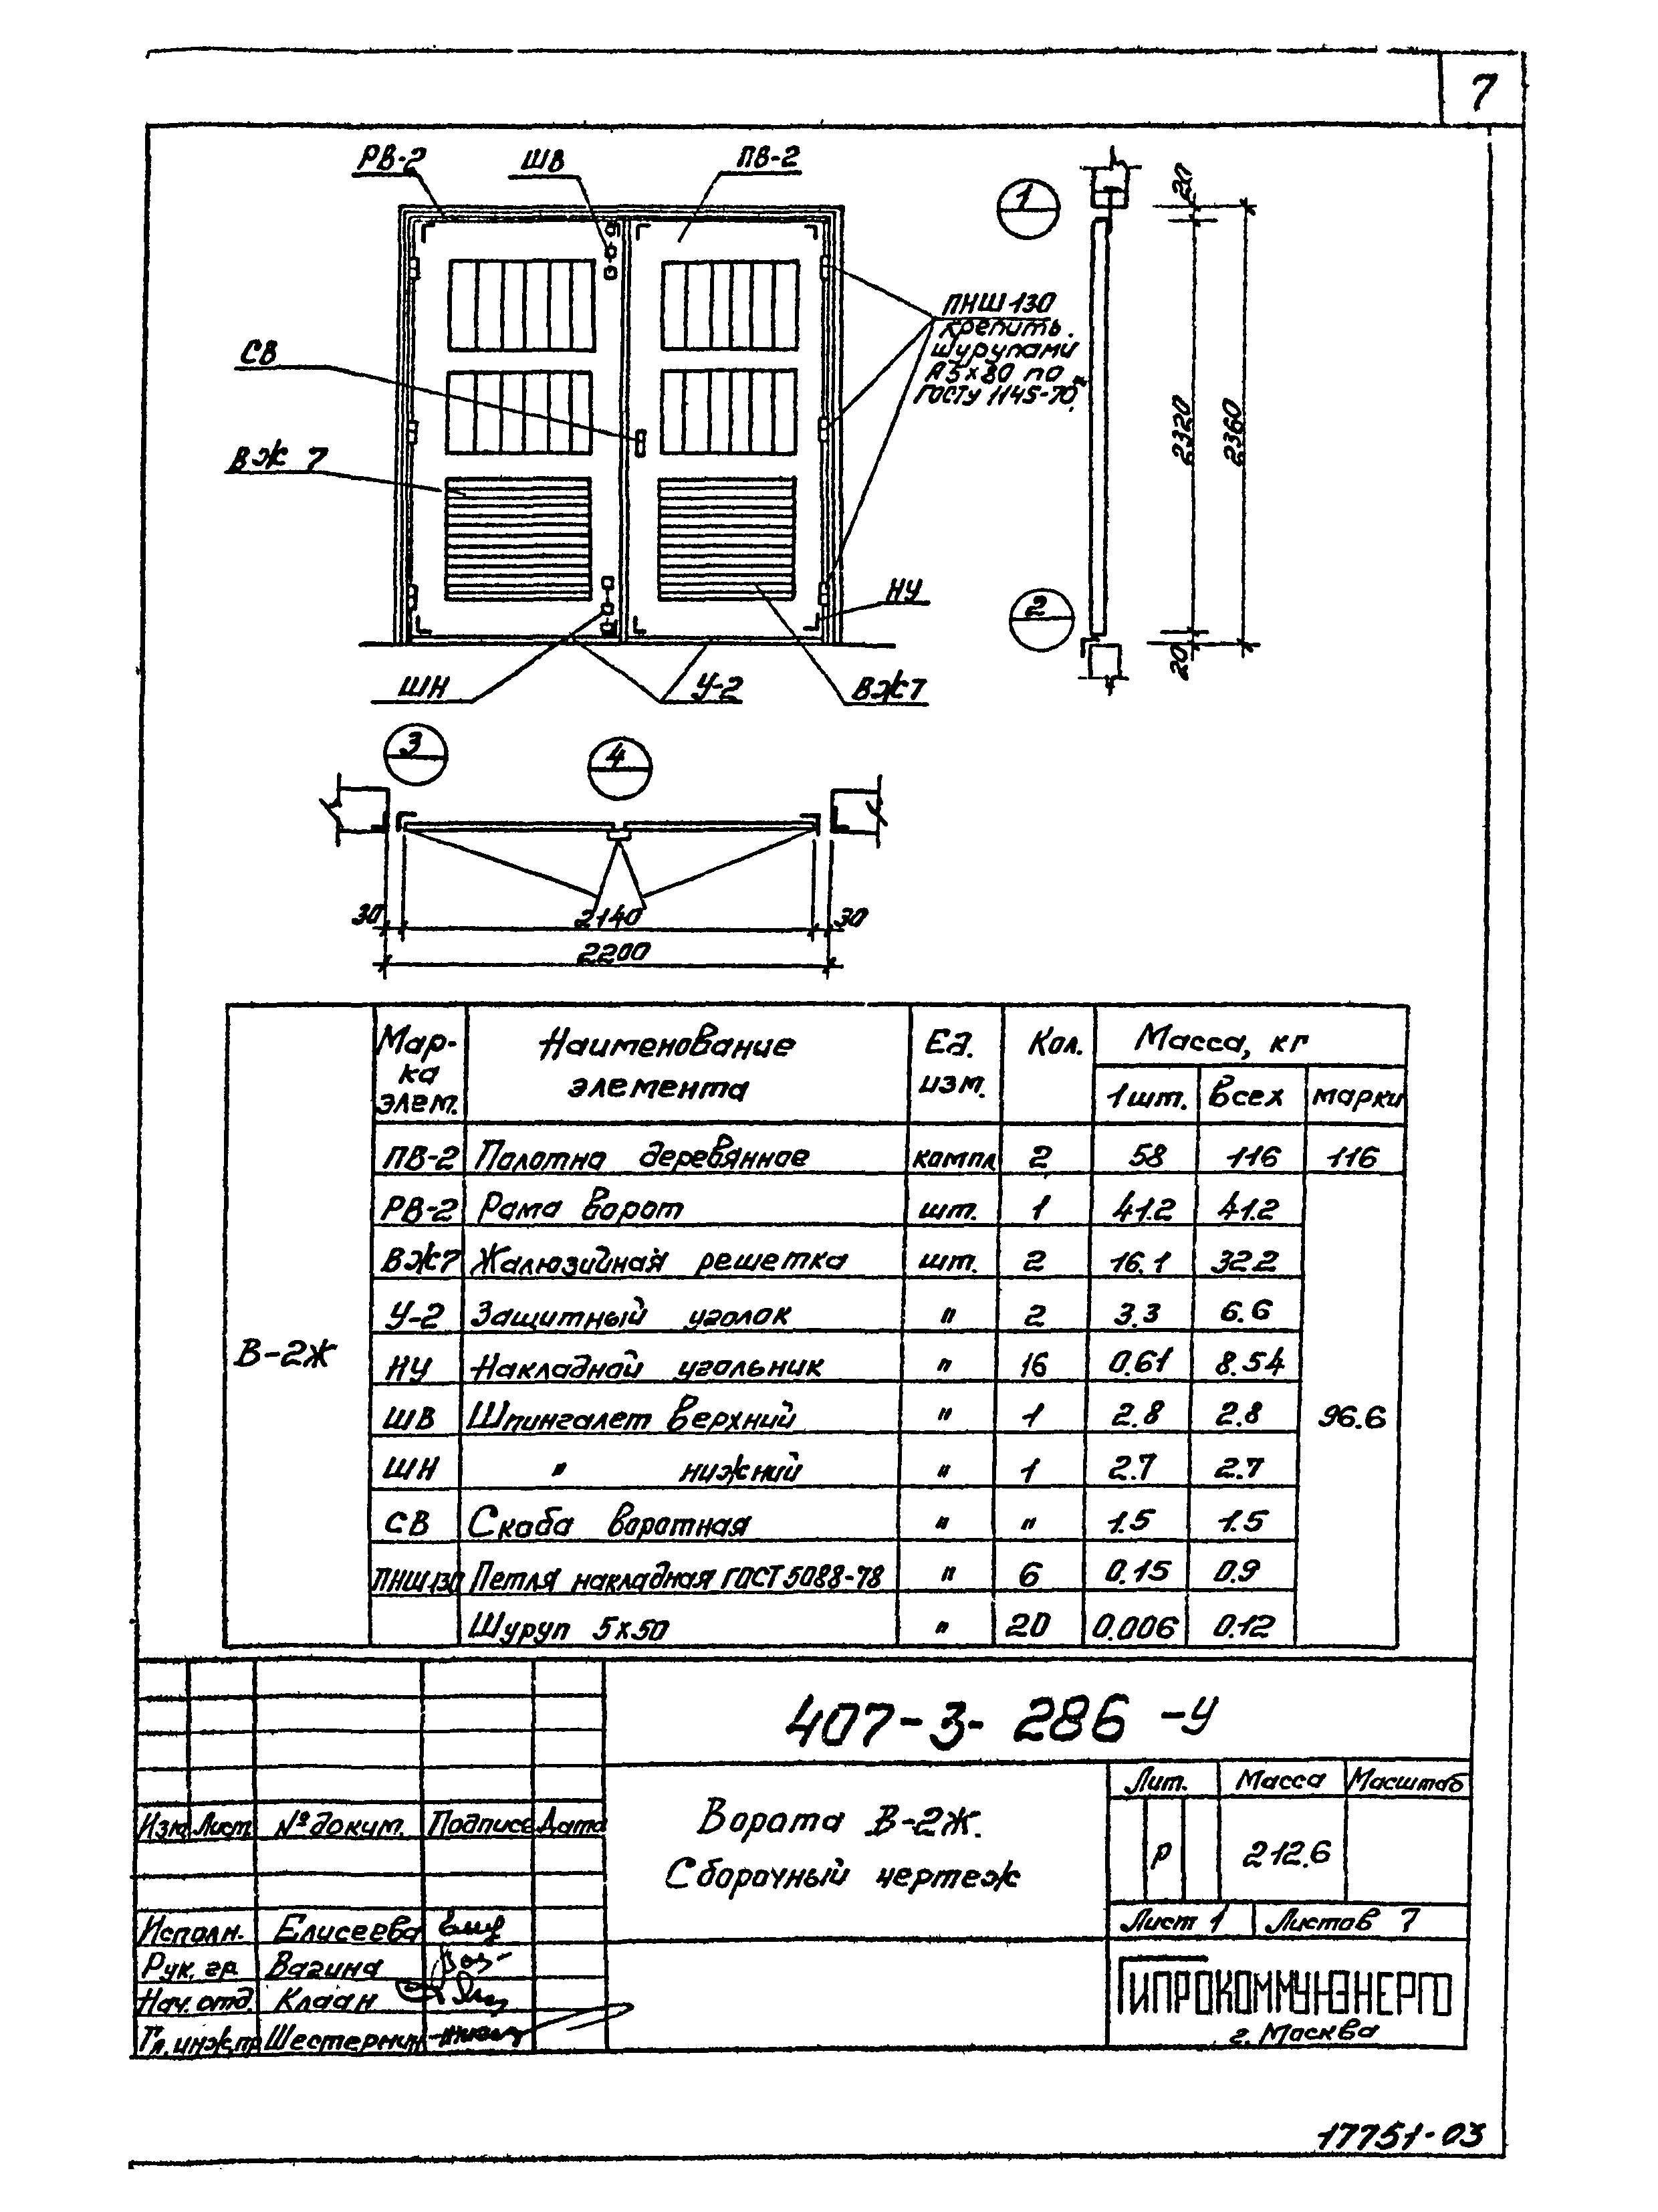 7
РВ-2 ШВ ПВ-2
1
20
ПНШ 130
крепить
шурупами
А5×80 по
ГОСТу 1145-70
СВ
ВЖ 7
2320
2360
НУ
2
20
ШН У-2 ВЖ7
3 4
30 2140 30
2200
Мар-
ка
элем.
Наименование
элемента
Ед.
изм.
Кол.
Масса, кг
1шт. Всех марки
В-2Ж
ПВ-2 Полотна деревянное компл 2 58 116 116
РВ-2 Рама ворот шт. 1 41.2 41.2
ВЖ7 Жалюзийная решетка шт. 2 16.1 32.2
У-2 Защитный уголок " 2 3.3 6.6
НУ Накладной угольник " 16 0.61 8.54
ШВ Шпингалет верхний " 1 2.8 2.8 96.6
ШН " нижний " 1 2.7 2.7
СВ Скоба воротная " " 1.5 1.5
ПНШ130 Петля накладная ГОСТ 5088-78 " 6 0.15 0.9
Шуруп 5×50 " 20 0.006 0.12
407-3-286-У
Изм Лист № докум. Подпись Дата
Ворота В-2Ж.
Сборочный чертеж
Лит. Масса Масштаб
Р 212.6
Лист 1 Листов 7
Исполн. Елисеева
Рук. гр. Вагина
Нач. отд. Клаан
Гл. инж.пр Шестернин
ГИПРОКОММУНЭНЕРГО
г. Москва
17751-03